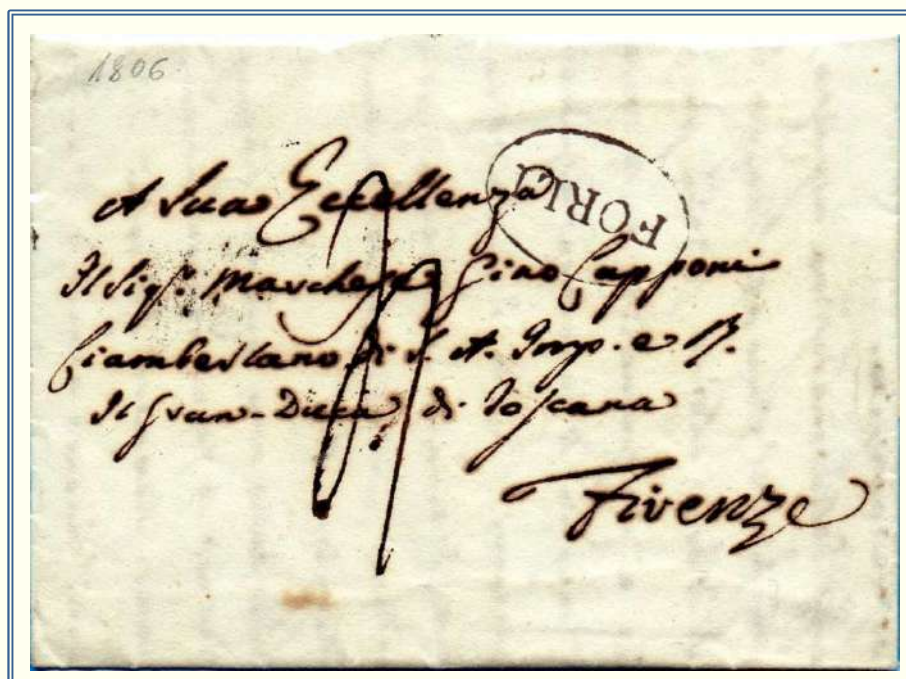 1806
A Sua Eccellenza
FORLI
Il Sigr. Marchese Gino Capponi
Ciambellano di S. A. Imp. e R.
Il Gran-Duca di Toscana
Firenze